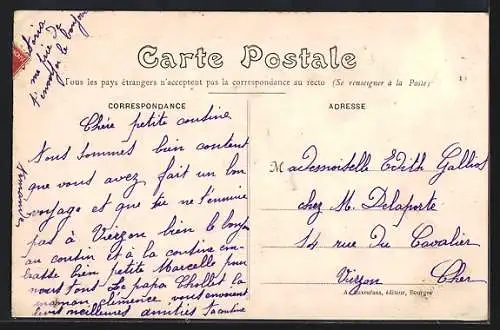 Maria
me prie de
t'envoyer le bonjour
Carte Postale
Tous les pays étrangers n'acceptent pas la correspondance au recto (Se renseigner à la Poste)
CORRESPONDANCE
Chère petite cousine
Nous sommes bien content
que vous avez fait un bon
voyage et que tu ne t'ennuie
pas à Vierzon bien le bonjour
au coutin et à la coutine em-
brasse bien petite Marcelle pour
nous tous. Le papa Chollet la
maman Clémence vous envoient
leurs meilleures amitiés ta cousine
Armande
ADRESSE
Mademoiselle Edith Gallios
chez M. Delaporte
14 rue Du Cavalier
Vierzon Cher
éditeur, Bourges